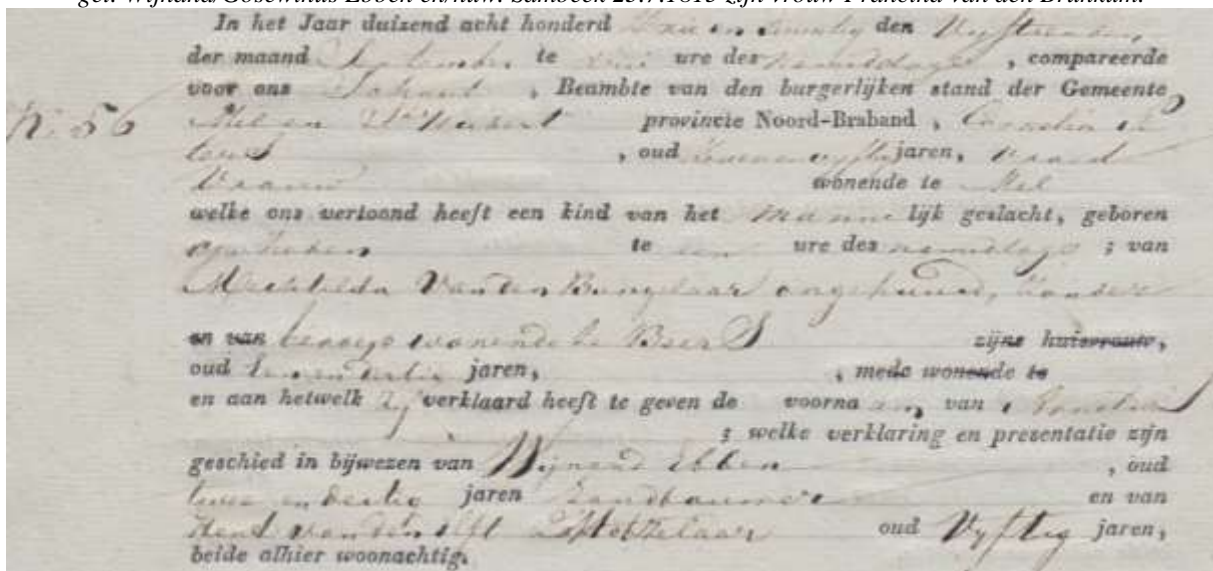 geb. Wijnand/Gosewinus Ebben en/huw. Sambeek 25.7.1813 zijn vrouw Francina van den Brinkum.
In het Jaar duizend acht honderd Drie en twintig den Vyftienden
der maand September te ure des namiddags , compareerde
voor ons , Beambte van den burgerlijken stand der Gemeente
N. 56 Mel en St Hubert provincie Noord-Braband , Cornelia
, oud jaren, vroed
Vrouw wonende te Mel
welke ons vertoond heeft een kind van het manne lijk geslacht, geboren
op heden te een ure des namiddags ; van
Mechtilda Van den Bungelaar ongehuwd, zonder
en van beroep wonende te Beers zijne huisvrouw,
oud jaren, , mede wonende te
en aan hetwelk zy verklaard heeft te geven de voorna am van
; welke verklaring en presentatie zijn
geschied in bijwezen van Wijnand Ebben , oud
twee en dertig jaren Landbouwer en van
Hend van den oud Vyftig jaren,
beide alhier woonachtig.